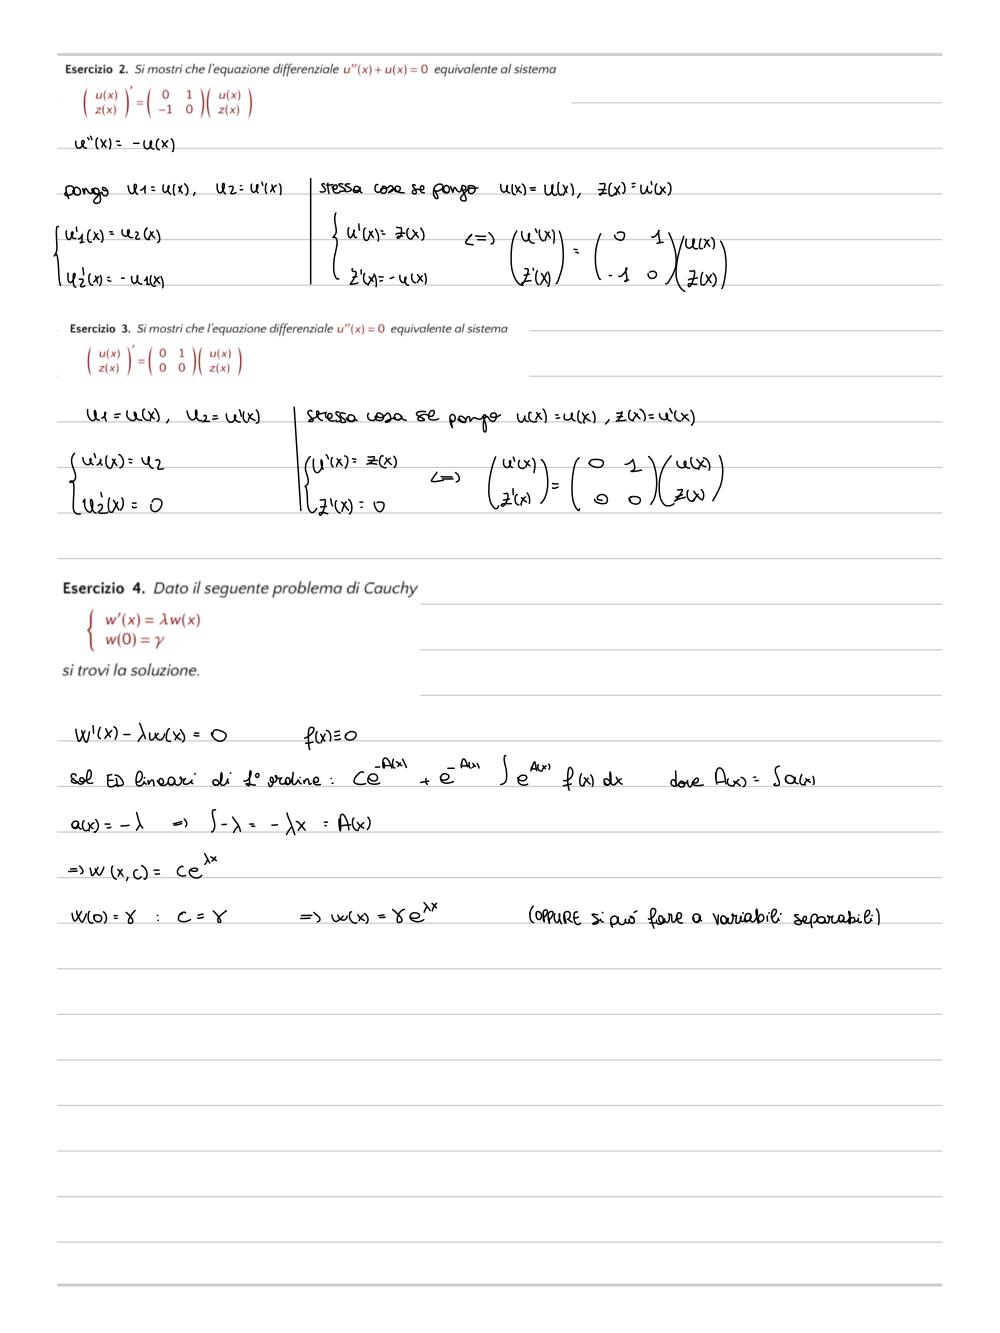 Esercizio 2. Si mostri che l'equazione differenziale u''(x) + u(x) = 0 equivalente al sistema
( u(x) z(x) )' = ( 0 1 -1 0 ) ( u(x) z(x) )
u''(x) = -u(x)
pongo u1 = u(x), u2 = u'(x) | stessa cosa se pongo u(x) = u(x), z(x) = u'(x)
{ u1'(x) = u2(x) | { u'(x) = z(x) <=> ( u'(x) ) = ( 0 1 ) ( u(x) )
u2'(x) = -u1(x) | z'(x) = -u(x) ( z'(x) ) ( -1 0 ) ( z(x) )
Esercizio 3. Si mostri che l'equazione differenziale u''(x) = 0 equivalente al sistema
( u(x) z(x) )' = ( 0 1 0 0 ) ( u(x) z(x) )
u1 = u(x), u2 = u'(x) | stessa cosa se pongo u(x) = u(x), z(x) = u'(x)
{ u1'(x) = u2 | { u'(x) = z(x) <=> ( u'(x) ) = ( 0 1 ) ( u(x) )
u2'(x) = 0 | z'(x) = 0 ( z'(x) ) ( 0 0 ) ( z(x) )
Esercizio 4. Dato il seguente problema di Cauchy
{ w'(x) = λw(x)
w(0) = γ
si trovi la soluzione.
w'(x) - λw(x) = 0 f(x) ≡ 0
sol ED lineari di 1° ordine : ce^{-A(x)} + e^{-A(x)} ∫ e^{A(x)} f(x) dx dove A(x) = ∫a(x)
a(x) = -λ => ∫-λ = -λx = A(x)
=> w(x,c) = ce^{λx}
w(0) = γ : c = γ => w(x) = γe^{λx} (OPPURE si può fare a variabili separabili)